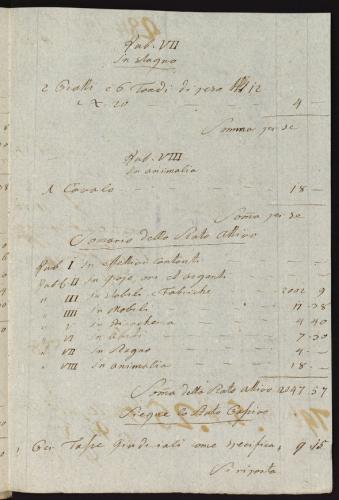 Rub. VII
In stagno
2 Piatti e 6 Tondi di peso 12
a X. 20 4 —
Somma per se
Rub. VIII
In animalia
1 Cavalo 18 —
Soma per se
Somario dello Stato Attivo
Rub. I in effettivi contanti — —
Rub. II in gioje, ori et argenti — —
" III in stabili e Fabriche 2002 9
" IIII in Mobili 11 38
" V in 4 40
" VI in 7 30
" VII in Stagno 4 —
" VIII in animalia 18 —
Soma dello Stato Attivo 2047 57
Siegue lo Stato Passivo
1 Per Tasse Giudiciali come specifica, 9 45
Si riporta